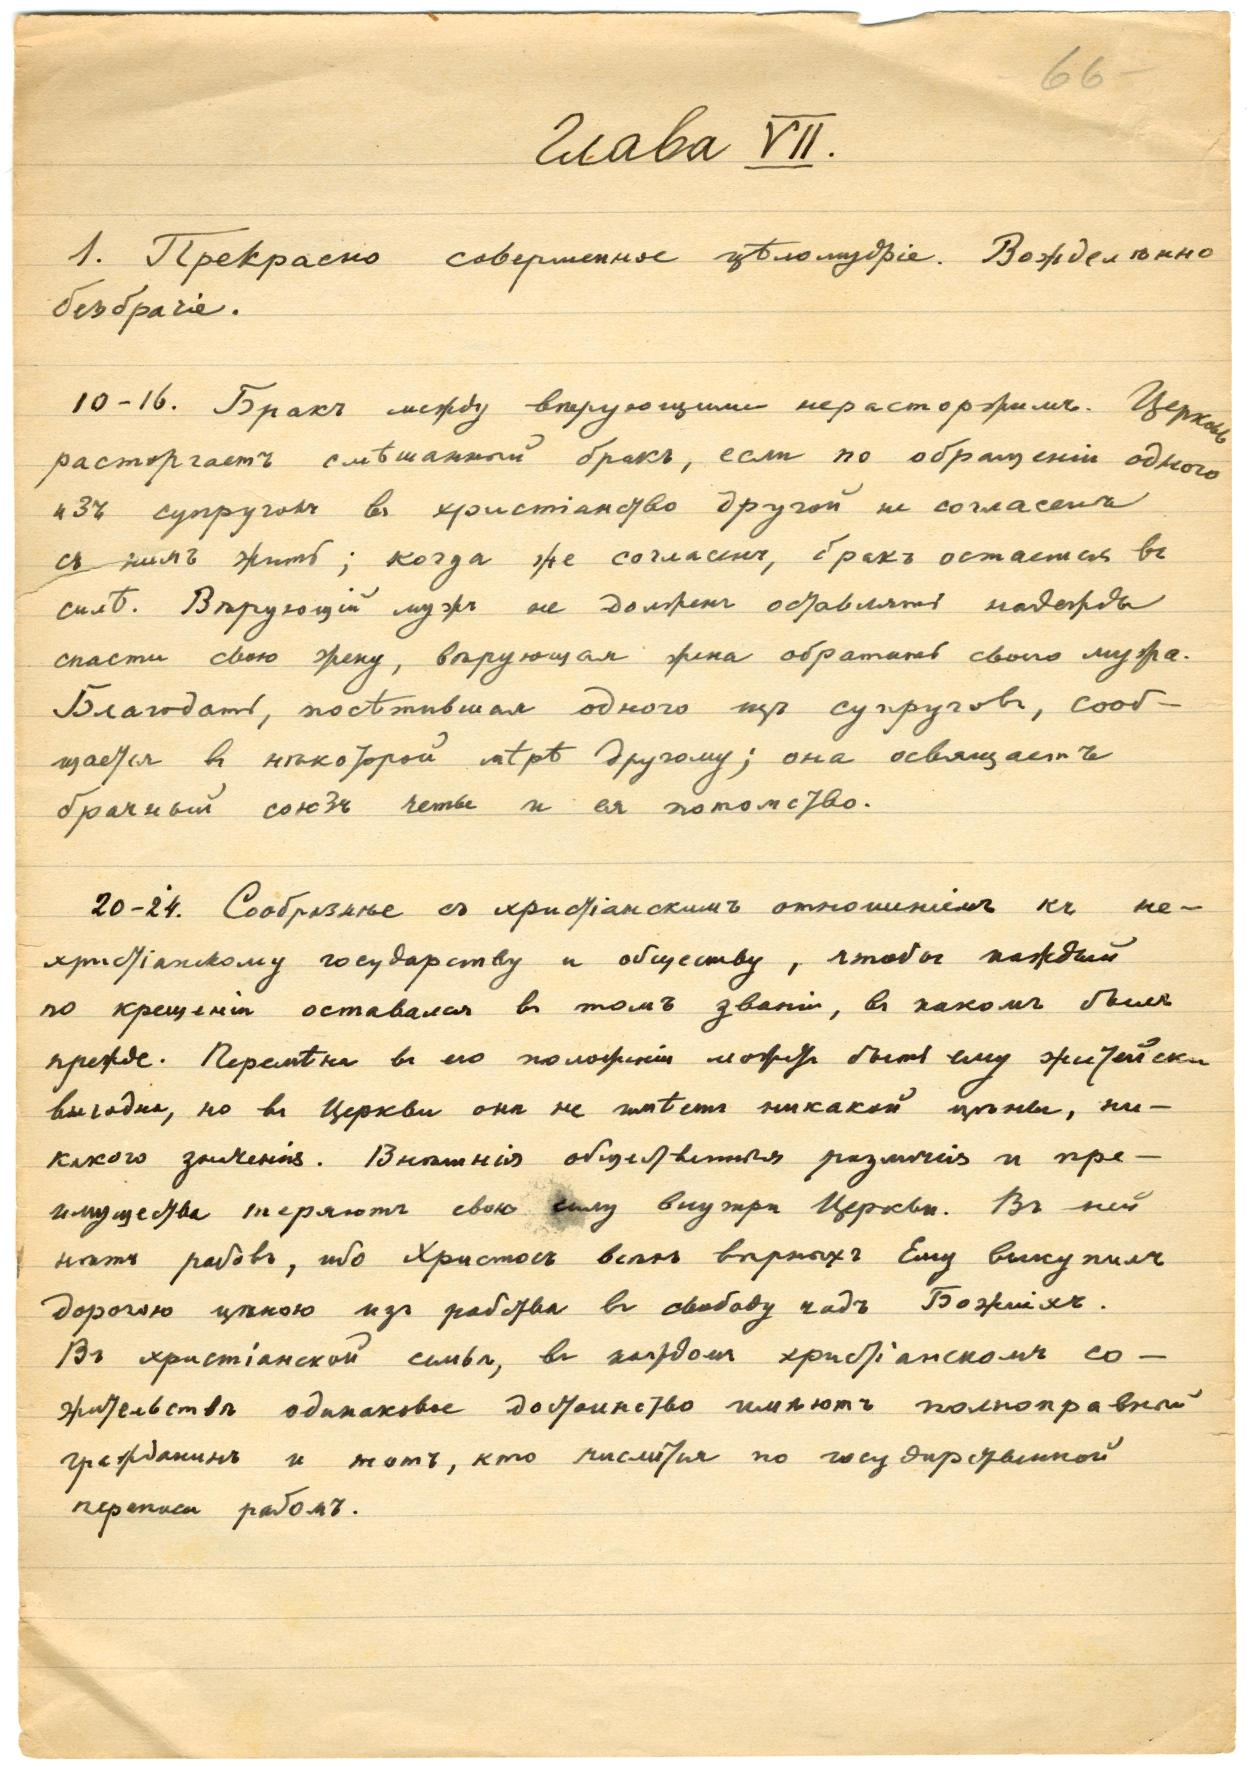 66-
Глава VII.
1. Прекрасно совершенное цѣломудріе. Вожделѣнно
безбрачіе.
10-16. Бракъ между вѣрующими нерасторжимъ. Церковь
расторгаетъ смѣшанный бракъ, если по обращеніи одного
изъ супруговъ въ христіанство другой не согласенъ
съ нимъ жить; когда же согласенъ, бракъ остается въ
силѣ. Вѣрующій мужъ не долженъ оставлять надежды
спасти свою жену, вѣрующая жена обратить своего мужа.
Благодать, посѣтившая одного изъ супруговъ, сооб-
щается въ нѣкоторой мѣрѣ другому; она освящаетъ
брачный союзъ четы и ея потомство.
20-24. Сообразнѣе съ христіанскимъ отношеніемъ къ не-
христіанскому государству и обществу, чтобы каждый
по крещеніи оставался въ томъ званіи, въ какомъ былъ
прежде. Перемѣна въ его положеніи можетъ быть ему житейски
выгодна, но въ Церкви она не имѣетъ никакой цѣны, ни-
какого значенія. Внѣшнія общественныя различія и пре-
имущества теряютъ свою силу внутри Церкви. Въ ней
нѣтъ рабовъ, ибо Христосъ всѣхъ вѣрныхъ Ему выкупилъ
дорогою цѣною изъ рабства въ свободу чадъ Божіихъ.
Въ христіанской семьѣ, въ каждомъ христіанскомъ со-
жительствѣ одинаковое достоинство имѣютъ полноправный
гражданинъ и тотъ, кто числится по государственной
переписи рабомъ.